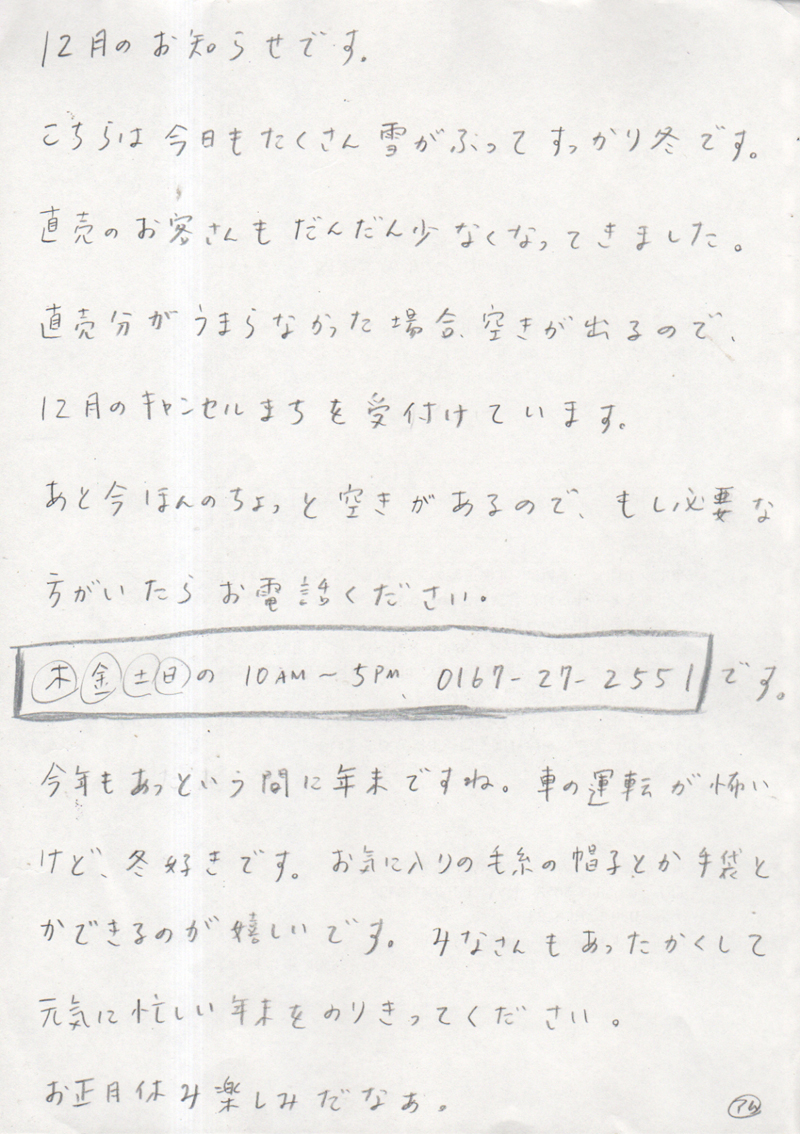 12月のお知らせです。
こちらは今日もたくさん雪がふってすっかり冬です。
直売のお客さんもだんだん少なくなってきました。
直売分がうまらなかった場合、空きが出るので、
12月のキャンセルまちを受付けています。
あと今ほんのちょっと空きがあるので、もし必要な
方がいたらお電話ください。
木金土日の 10AM〜5PM、0167-27-2551です。
今年もあっという間に年末ですね。車の運転が怖い
けど、冬好きです。お気に入りの毛糸の帽子とか手袋と
かできるのが嬉しいです。みなさんもあったかくして
元気に忙しい年末をのりきってください。
お正月休み楽しみだなぁ。